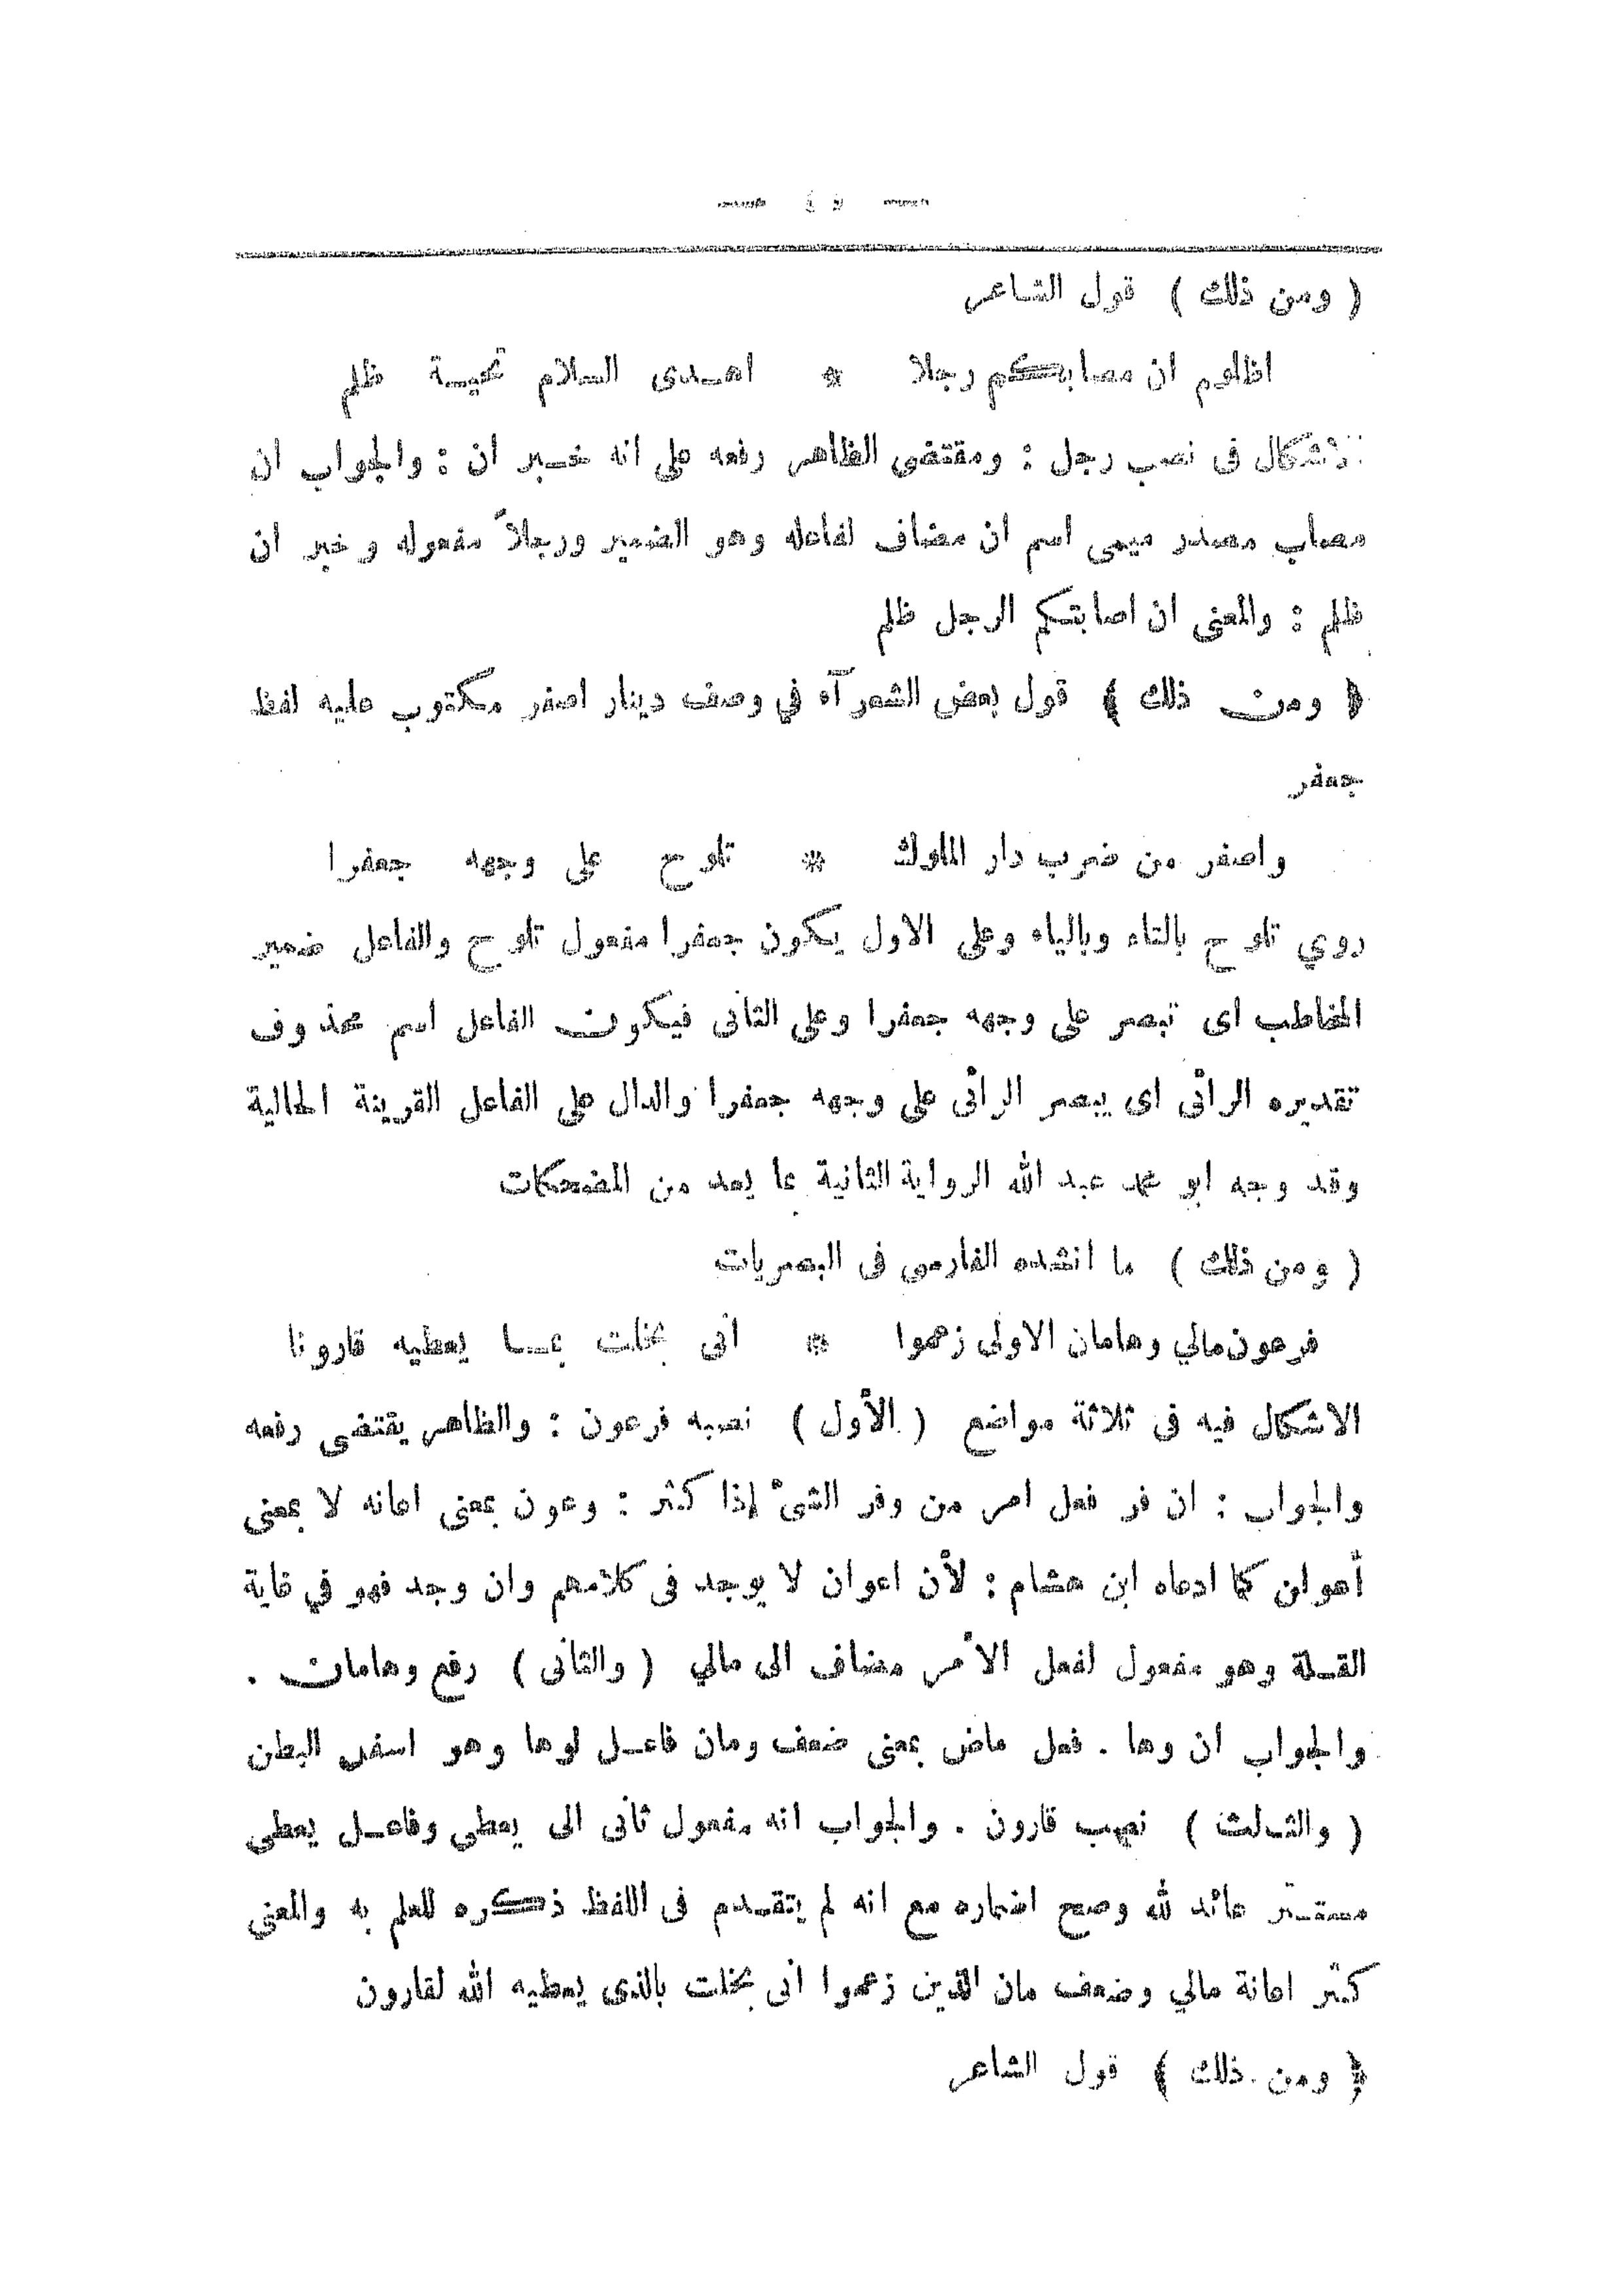 ( ومن ذلك ) قول الشاعر
اظلوم ان مصابكم رجلا * اهدى السلام تحية ظلم
الاشكال فى نصب رجل : ومقتضى الظاهر رفعه على انه خبر ان : والجواب ان
مصاب مصدر ميمى اسم ان مضاف لفاعله وهو الضمير ورجلاً مفعوله وخبر ان
ظلم : والمعنى ان اصابتكم الرجل ظلم
﴿ ومن ذلك ﴾ قول بعض الشعرآء في وصف دينار اصفر مكتوب عليه لفظ
جعفر
واصفر من ضرب دار الملوك * تلوح على وجهه جعفرا
روي تلوح بالتاء وبالياء وعلى الاول يكون جعفرا مفعول تلوح والفاعل ضمير
المخاطب اى تبصر على وجهه جعفرا وعلى الثانى فيكون الفاعل اسم محذوف
تقديره الرائى اى يبصر الرائى على وجهه جعفرا والدال على الفاعل القرينة الحالية
وقد وجه ابو محمد عبد الله الرواية الثانية بما يعد من المضحكات
( ومن ذلك ) ما انشده الفارسى فى البصريات
فرعون مالي وهامان الاولى زعموا * انى بخلت بما يعطيه قارونا
الاشكال فيه فى ثلاثة مواضع ( الأول ) نصبه فرعون : والظاهر يقتضى رفعه
والجواب : ان فر فعل امر من وفر الشئ إذا كثر : وعون بمعنى اعانه لا بمعنى
أعوان كما ادعاه ابن هشام : لأن اعوان لا يوجد فى كلامهم وان وجد فهو في غاية
القلة وهو مفعول لفعل الأمر مضاف الى مالي ( والثانى ) رفع وهامان .
والجواب ان وها . فعل ماض بمعنى ضعف ومان فاعل لوها وهو اسفل البطن
( والثالث ) نصب قارون . والجواب انه مفعول ثانى الى يعطى وفاعل يعطى
مستتر عائد لله وصح اضماره مع انه لم يتقدم فى اللفظ ذكره للعلم به والمعنى
كثر اعانة مالي وضعف مان الذين زعموا انى بخلت بالذى يعطيه الله لقارون
﴿ ومن ذلك ﴾ قول الشاعر